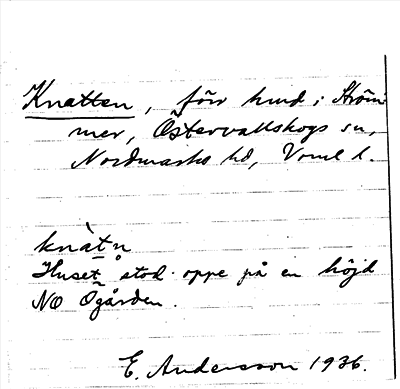 Knatten, förr hmd i Ström
mer, Östervallskogs sn,
Nordmarks hd, Vrml l.
knàt̄n
Huset stod oppe på en höjd
NO Ögården.
E. Andersson 1936.